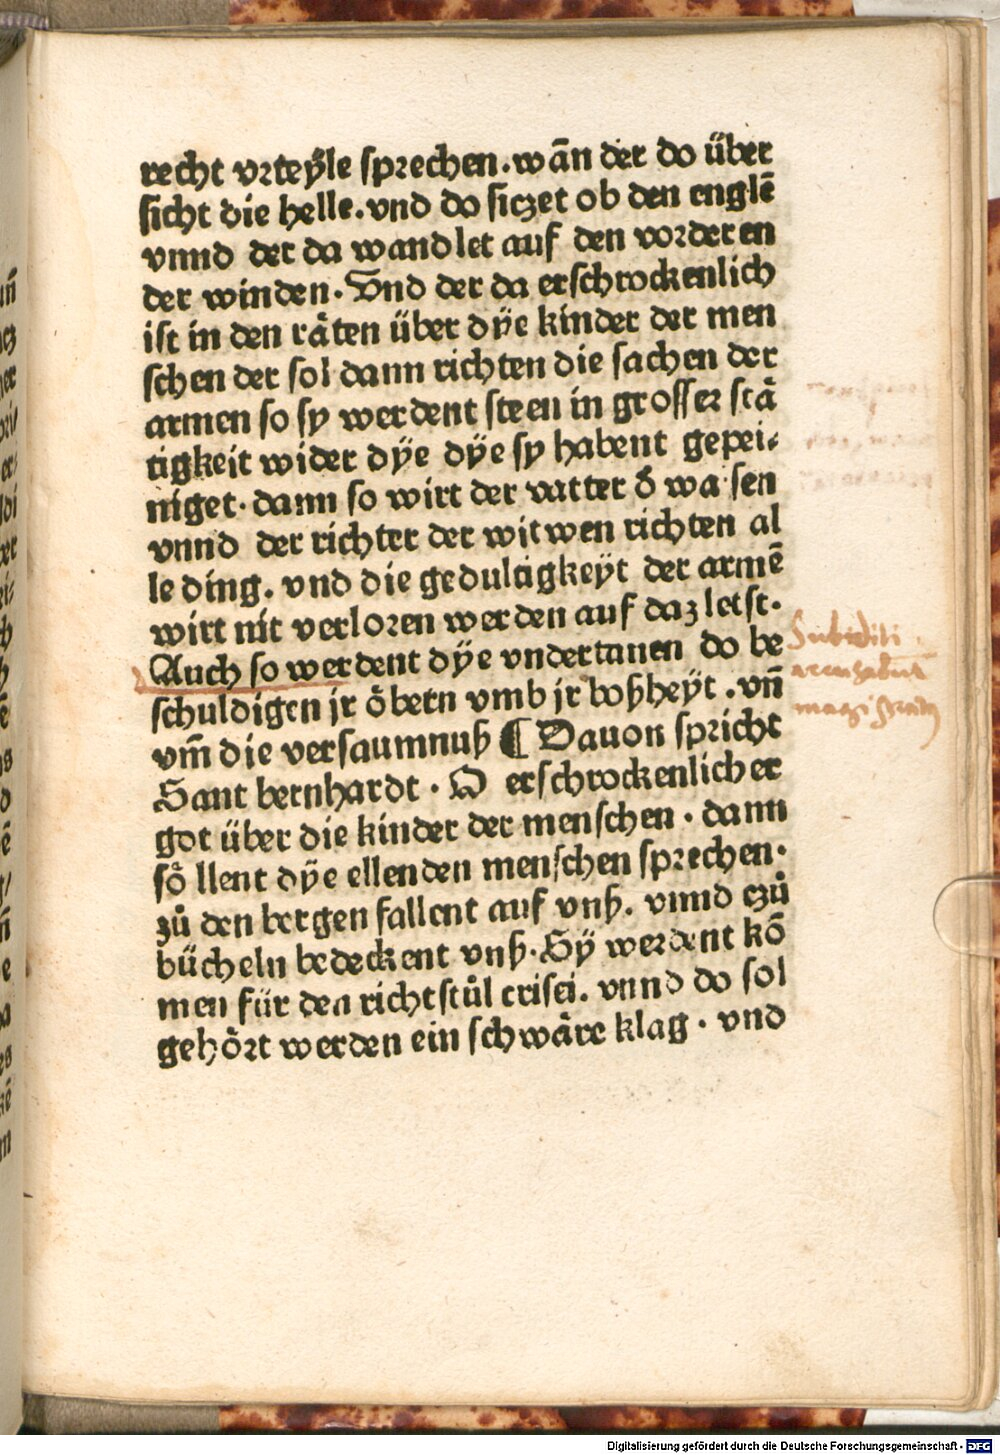 recht vrteÿle sprechen.wān der do über
sicht die helle.vnd do siczet ob den englē
vnnd der da wandlet auf den vorderen
der winden.Vnd der da erschrockenlich
ist in den räten über dÿe kinder der men
schen der sol dann richten die sachen der
armen so sy werdent steen in grosser stä
tigkeit wider dÿe dÿe sy habent gepei⸗
niget.dann so wirt der vatter ð wa sen
vnnd der richter der witwen richten al
le ding. vnd die gedultigkeÿt der armē
wirt nit verloren werden auf daz letst.
Auch so werdent dÿe vndertanen do be
schuldigen jr öbern vmb jr boßheÿt .vn̄
vm̄ die versaumnuß ¶ Dauon spricht
Sant bernhardt . O erschrockenlicher
got über die kinder der menschen . dann
söllent dÿe ellenden menschen sprechen.
zů den bergen fallent auf vnß. vnnd czů
bücheln bedeckent vnß.Sÿ werdent kō
men für den richtstůl cristi. vnnd do sol
gehört werden ein schwäre klag . vnd
Subiditi
accusabūt
magistratū
Digitalisierung gefördert durch die Deutsche Forschungsgemeinschaft - DFG